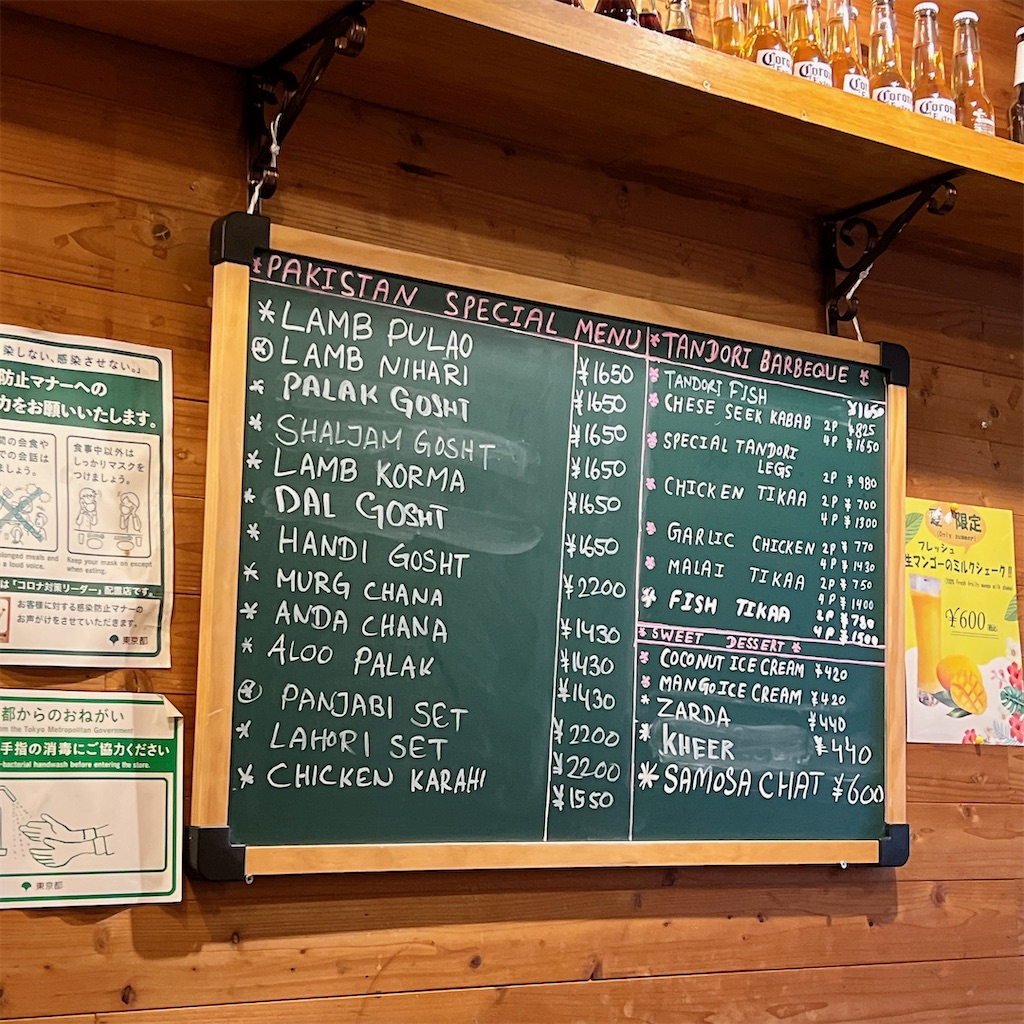 PAKISTAN SPECIAL MENU
LAMB PULAO ¥1650
LAMB NIHARI ¥1650
PALAK GOSHT ¥1650
SHALJAM GOSHT ¥1650
LAMB KORMA ¥1650
DAL GOSHT ¥1650
HANDI GOSHT ¥2200
MURG CHANA ¥1430
ANDA CHANA ¥1430
ALOO PALAK ¥1430
PANJABI SET ¥2200
LAHORI SET ¥2200
CHICKEN KARAHI ¥1550
TANDORI BARBEQUE
TANDORI FISH ¥1650
CHESE SEEK KABAB 2P ¥825
4P ¥1650
SPECIAL TANDORI
LEGS ¥980
CHICKEN TIKAA 2P ¥700
4P ¥1300
GARLIC CHICKEN 2P ¥770
4P ¥1430
MALAI TIKAA 2P ¥750
4P ¥1400
FISH TIKAA 2P ¥780
4P ¥1500
SWEET DESSERT
COCONUT ICE CREAM ¥420
MANGO ICE CREAM ¥420
ZARDA ¥440
KHEER ¥440
SAMOSA CHAT ¥600
染しない、感染させない。」
防止マナーへの
力をお願いいたします。
間の会食や
での会話は
ましょう。
食事中以外は
しっかりマスクを
つけましょう。
olonged meals and
a loud voice.
Keep your mask on except
when eating.
は「コロナ対策リーダー」配置店です。
お客様に対する感染防止マナーの
お声がけをさせていただきます。
東京都
都からのおねがい
om the Tokyo Metropolitan Government
手指の消毒にご協力ください
-bacterial handwash before entering the store.
東京都
夏 限定
(Only summer)
フレッシュ
生マンゴーのミルクシェーク!!
¥600
Corona
Extra
Corona
Corona
Corona
Corona